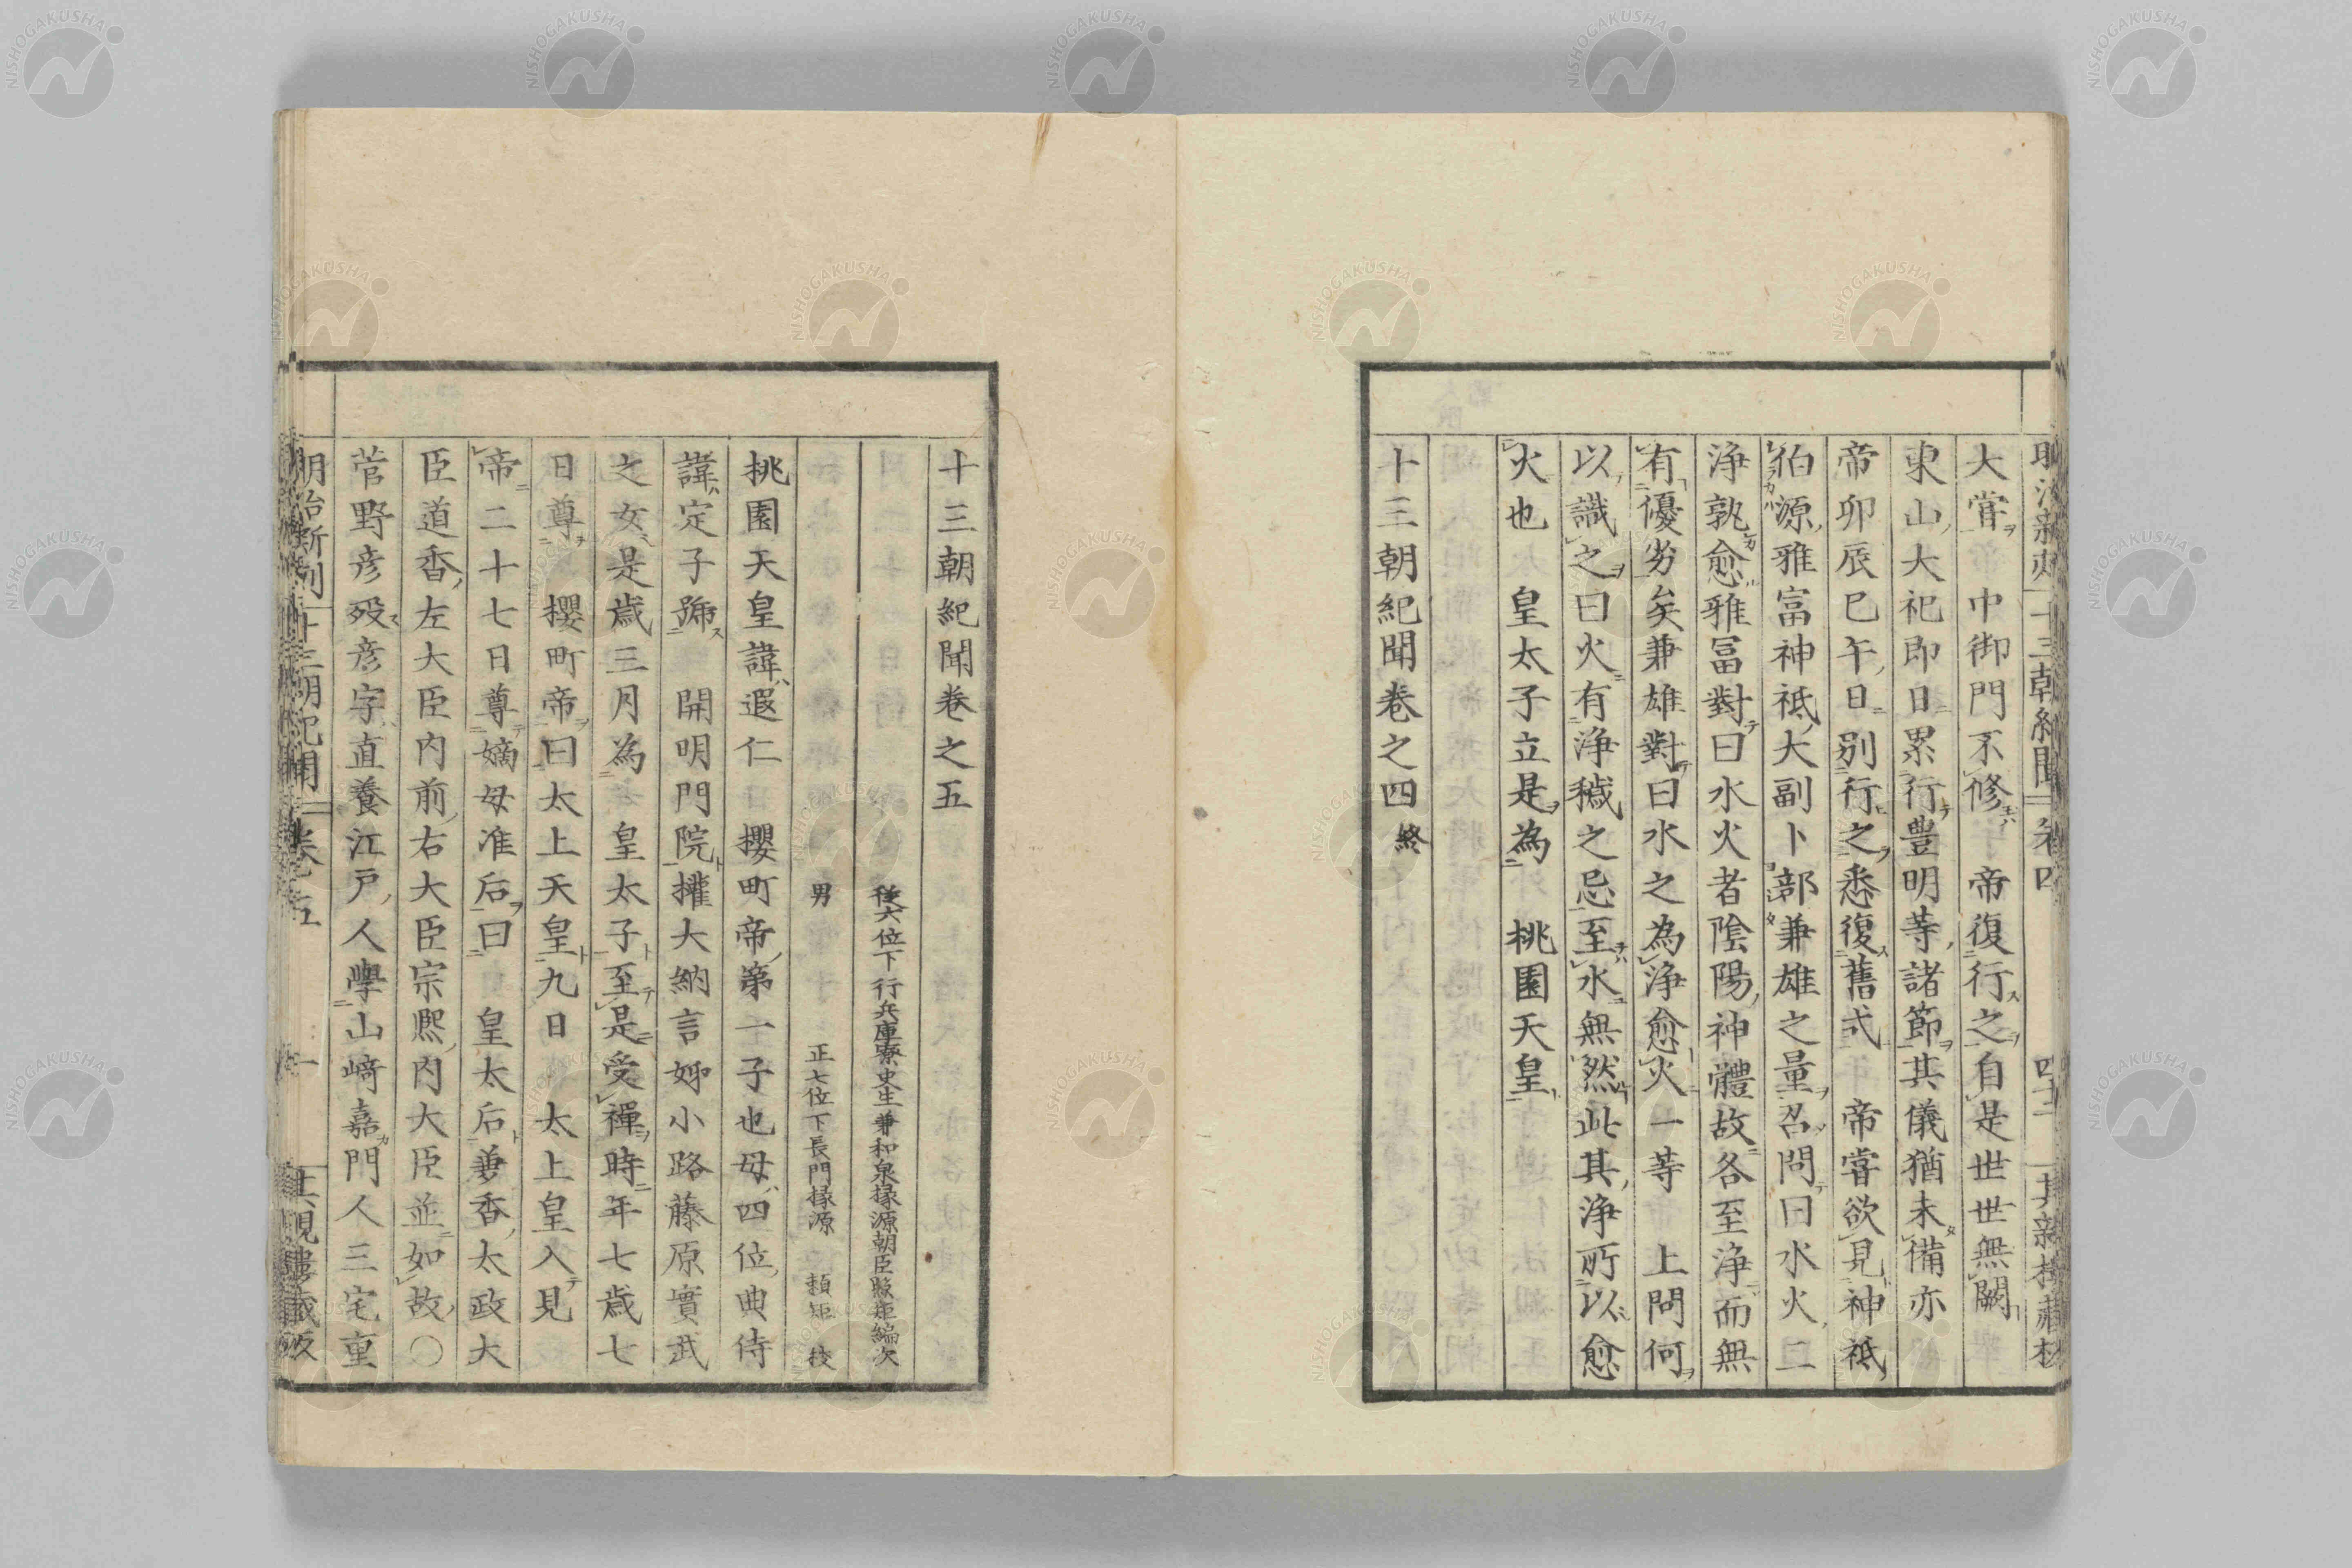 大甞　中御門不修　帝復行之自是世世無闕
東山大祀即日累行豊明等諸節其儀猶未備亦
帝卯辰巳午日別行之悉復舊式　帝甞欲見神祗
伯源雅富神祗大副卜部兼雄之量召問曰水火二
浄孰愈雅冨對曰水火者陰陽神體故各至浄而無
有優劣矣兼雄對曰水之為浄愈火一等　上問何
以識之曰火有浄穢之忌至水無然此其浄所以愈
火也　皇太子立是為　桃園天皇
十三朝紀聞巻之四終
十三朝紀聞巻之五
従六位下行兵庫寮史生兼和泉掾源朝臣照矩編次
男　正七位下長門掾源　頼矩　校
桃園天皇諱遐仁　櫻町帝第一子也母四位典侍
諱定子號　開明門院權大納言姉小路藤原實武
之女是歳三月為　皇太子至是受禪時年七歳七
日尊　櫻町帝曰太上天皇九日　太上皇入見
帝二十七日尊嫡母准后曰　皇太后兼香太政大
臣道香左大臣内前右大臣宗熙内大臣並如故〇
菅野彦歿彦字直養江戸人學山﨑嘉門人三宅重
明治新刻 十三朝紀聞 巻之五 一